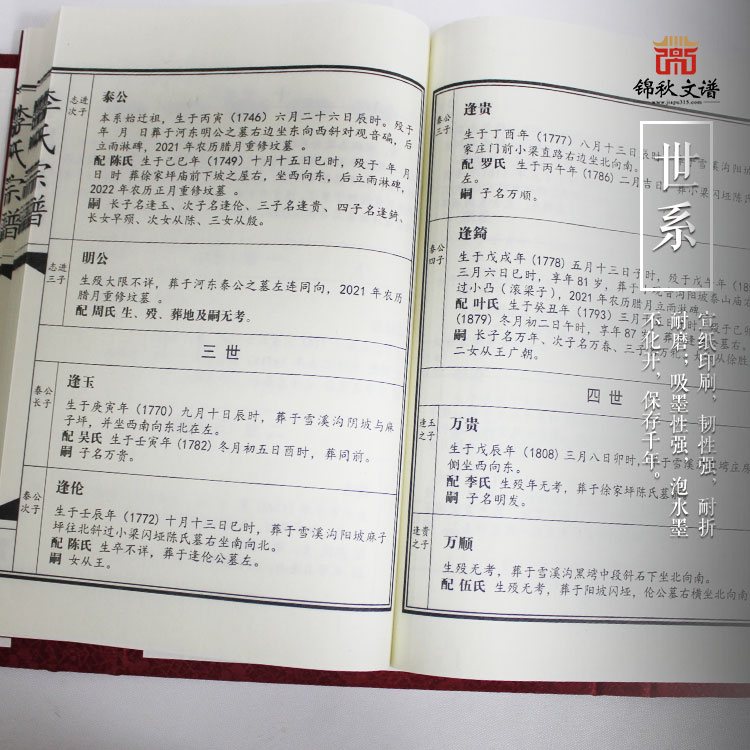 李氏宗谱
志进
次子
泰公
本系始迁祖，生于丙寅（1746）六月二十六日辰时。殁于
年 月 日葬于河东明公之墓右边坐东向西斜对观音磘，后
立雨淋碑，2021年农历腊月重修坟墓。
配 陈氏 生于己巳年（1749）十月十五日巳时，殁于 年 月
日 时 葬徐家坪庙前下坡之屋右，坐西向东，后立雨淋碑，
2022年农历正月重修坟墓。
嗣 长子名逢玉、次子名逢伦、三子名逢贵、四子名逢錡、
长女早殒、次女从陈、三女从殷。
志进
三子
明公
生殁大限不详，葬于河东泰公之墓左连同向，2021年农历
腊月重修坟墓。
配 周氏 生、殁、葬地及嗣无考。
三世
泰公
长子
逢玉
生于庚寅年（1770）九月十日辰时，葬于雪溪沟阴坡与麻
子坪，并坐西南向东北在左。
配 吴氏 生于壬寅年（1782）冬月初五日酉时，葬同前。
嗣 子名万贵。
泰公
次子
逢伦
生于壬辰年（1772）十月十三日巳时，葬于雪溪沟阳坡麻子
坪往北斜过小梁闪垭陈氏墓右坐南向北。
配 陈氏 生卒不详，葬于逢伦公墓左。
嗣 女从王。
泰公
三子
逢贵
生于丁酉年（1777）八月十三日辰时
家庄门前小梁直路右边坐北向南。
配 罗氏 生于丙午年（1786）二月吉日
葬小梁闪垭陈氏
左。
嗣 子名万顺。
泰公
四子
逢錡
生于戊戌年（1778）五月十三日子时，殁于戊午年
三月六日巳时，享年81岁，葬于
过小凸（滚梁子），2021年农历腊月立雨淋碑
配 叶氏 生于癸丑年（1793）三月
（1879）冬月初二日午时，享年87岁
嗣 长子名万年、次子名万春、三子
二女从王广朝。
四世
逢玉
之子
万贵
生于戊辰年（1808）三月八日卯时，
侧坐西向东。
配 李氏 生殁年无考，葬于徐家坪陈氏墓
嗣 子名明发。
逢贵
之子
万顺
生殁无考，葬于雪溪沟黑塆中段斜石下坐北向南。
配 伍氏 生殁无考，葬于阳坡闪垭，伦公墓右横坐北向南
锦秋文谱
www.jiapu315.com
世系
宣纸印刷，韧性强，耐折
耐磨；吸墨性强，泡水墨
不化开，保存千年。